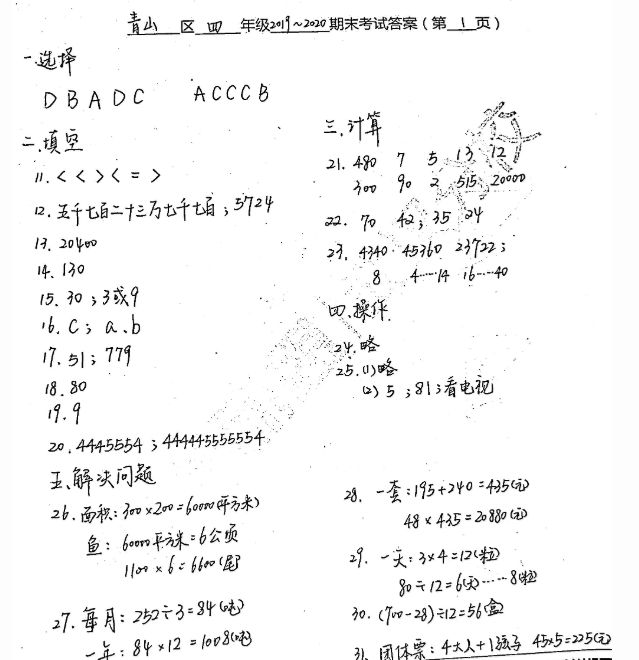 青山 区 四 年级2019~2020期末考试答案(第 1 页)
一.选择
D B A D C A C C C B
二.填空
11. < < > < = >
12. 五千七百二十三万七千七百 ; 5724
13. 20400
14. 130
15. 30 ; 3或9
16. C ; a、b
17. 51 ; 779
18. 80
19. 9
20. 4445554 ; 444445555554
三.计算
21. 480 7 5 13 12
300 90 2 515 20000
22. 70 42 ; 35 24
23. 4340 45360 23722 ;
8 4……14 16……40
四.操作
24. 略
25. (1)略
(2) 5 ; 81 ; 看电视
五.解决问题
26. 面积: 300×200=60000(平方米)
鱼: 60000平方米=6公顷
1100×6=6600(尾)
27. 每月: 252÷3=84(吨)
一年: 84×12=1008(吨)
28. 一套: 195+240=435(元)
48×435=20880(元)
29. 一天: 3×4=12(粒)
80÷12=6(天)……8(粒)
30. (700-28)÷12=56(盒)
31. 团体票: 4大人+1孩子 45×5=225(元)